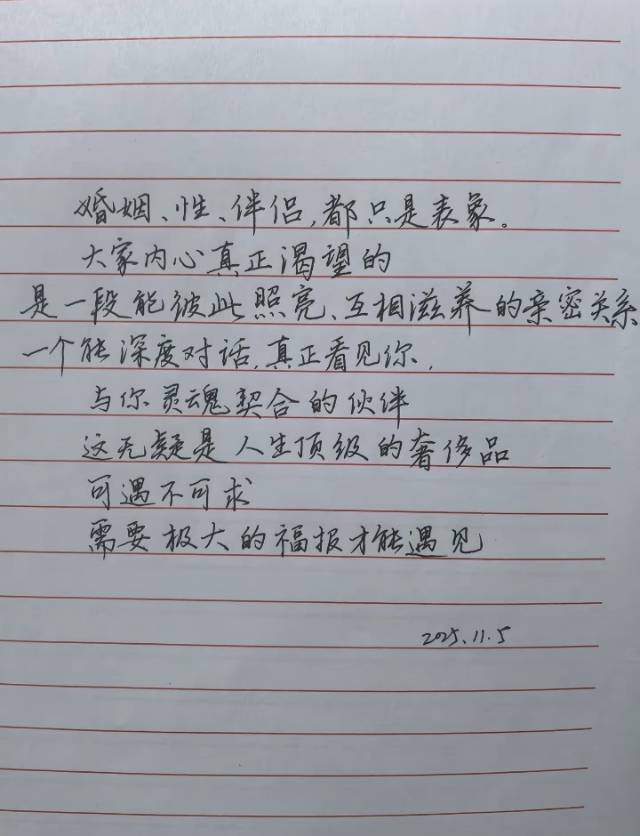 婚姻、性、伴侣,都只是表象。
大家内心真正渴望的
是一段能彼此照亮、互相滋养的亲密关系
一个能深度对话,真正看见你,
与你灵魂契合的伙伴
这无疑是人生顶级的奢侈品
可遇不可求
需要极大的福报才能遇见
2025.11.5